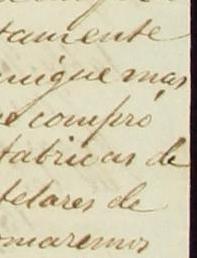 tamente
unique mas
compró
fabricas de
telares de
omaremos